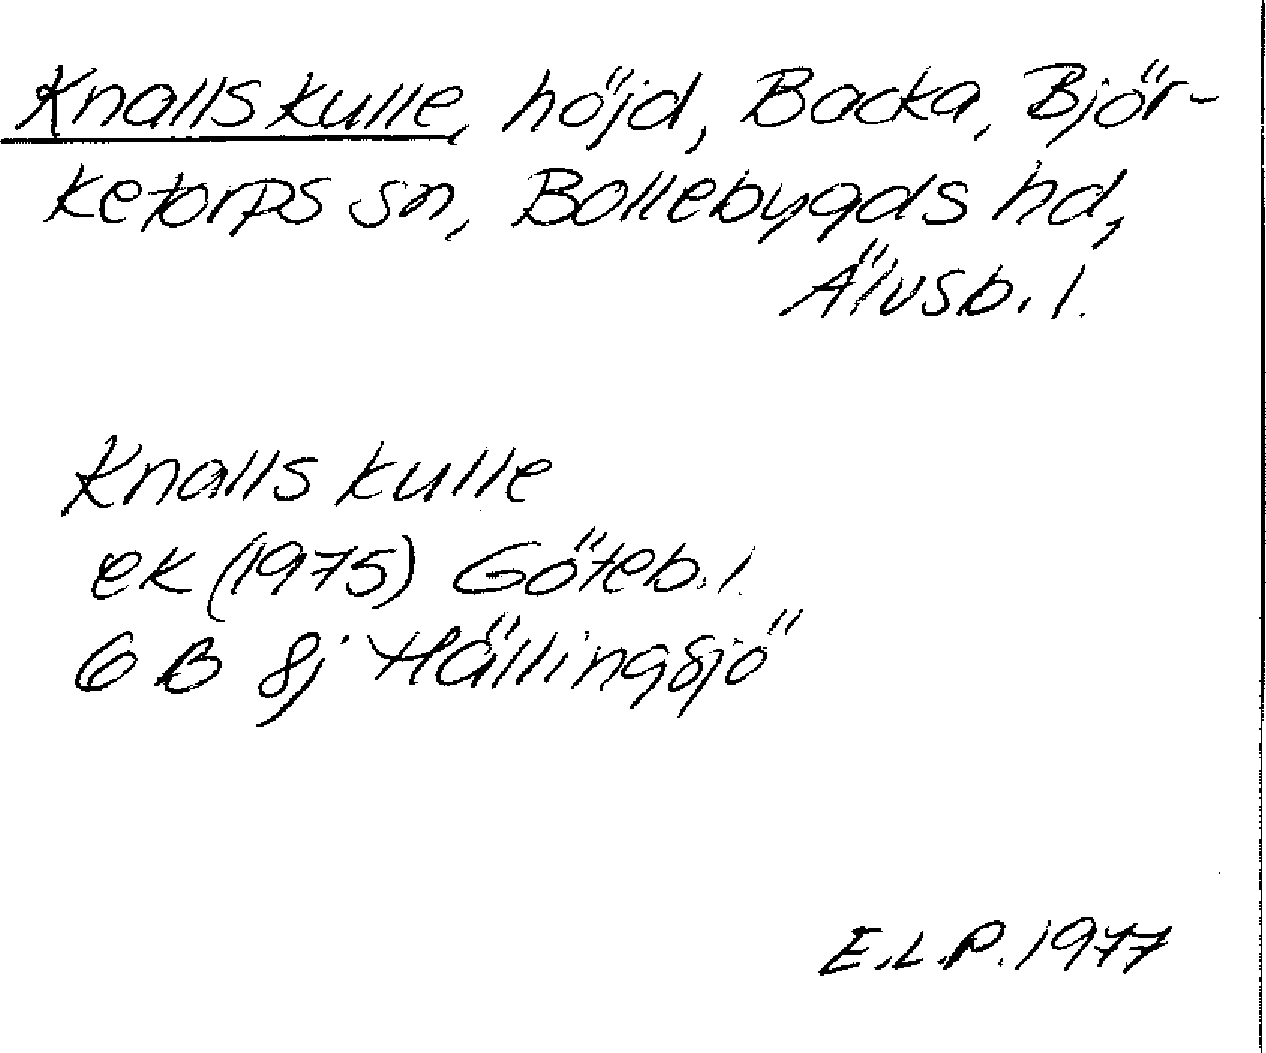 Knalls kulle, höjd, Backa, Björ-
ketorps sn, Bollebygds hd,
Älvsb. l.
Knalls kulle
ek (1975) Göteb. l.
6 B 8j Hällingsjö
E.L.P. 1977